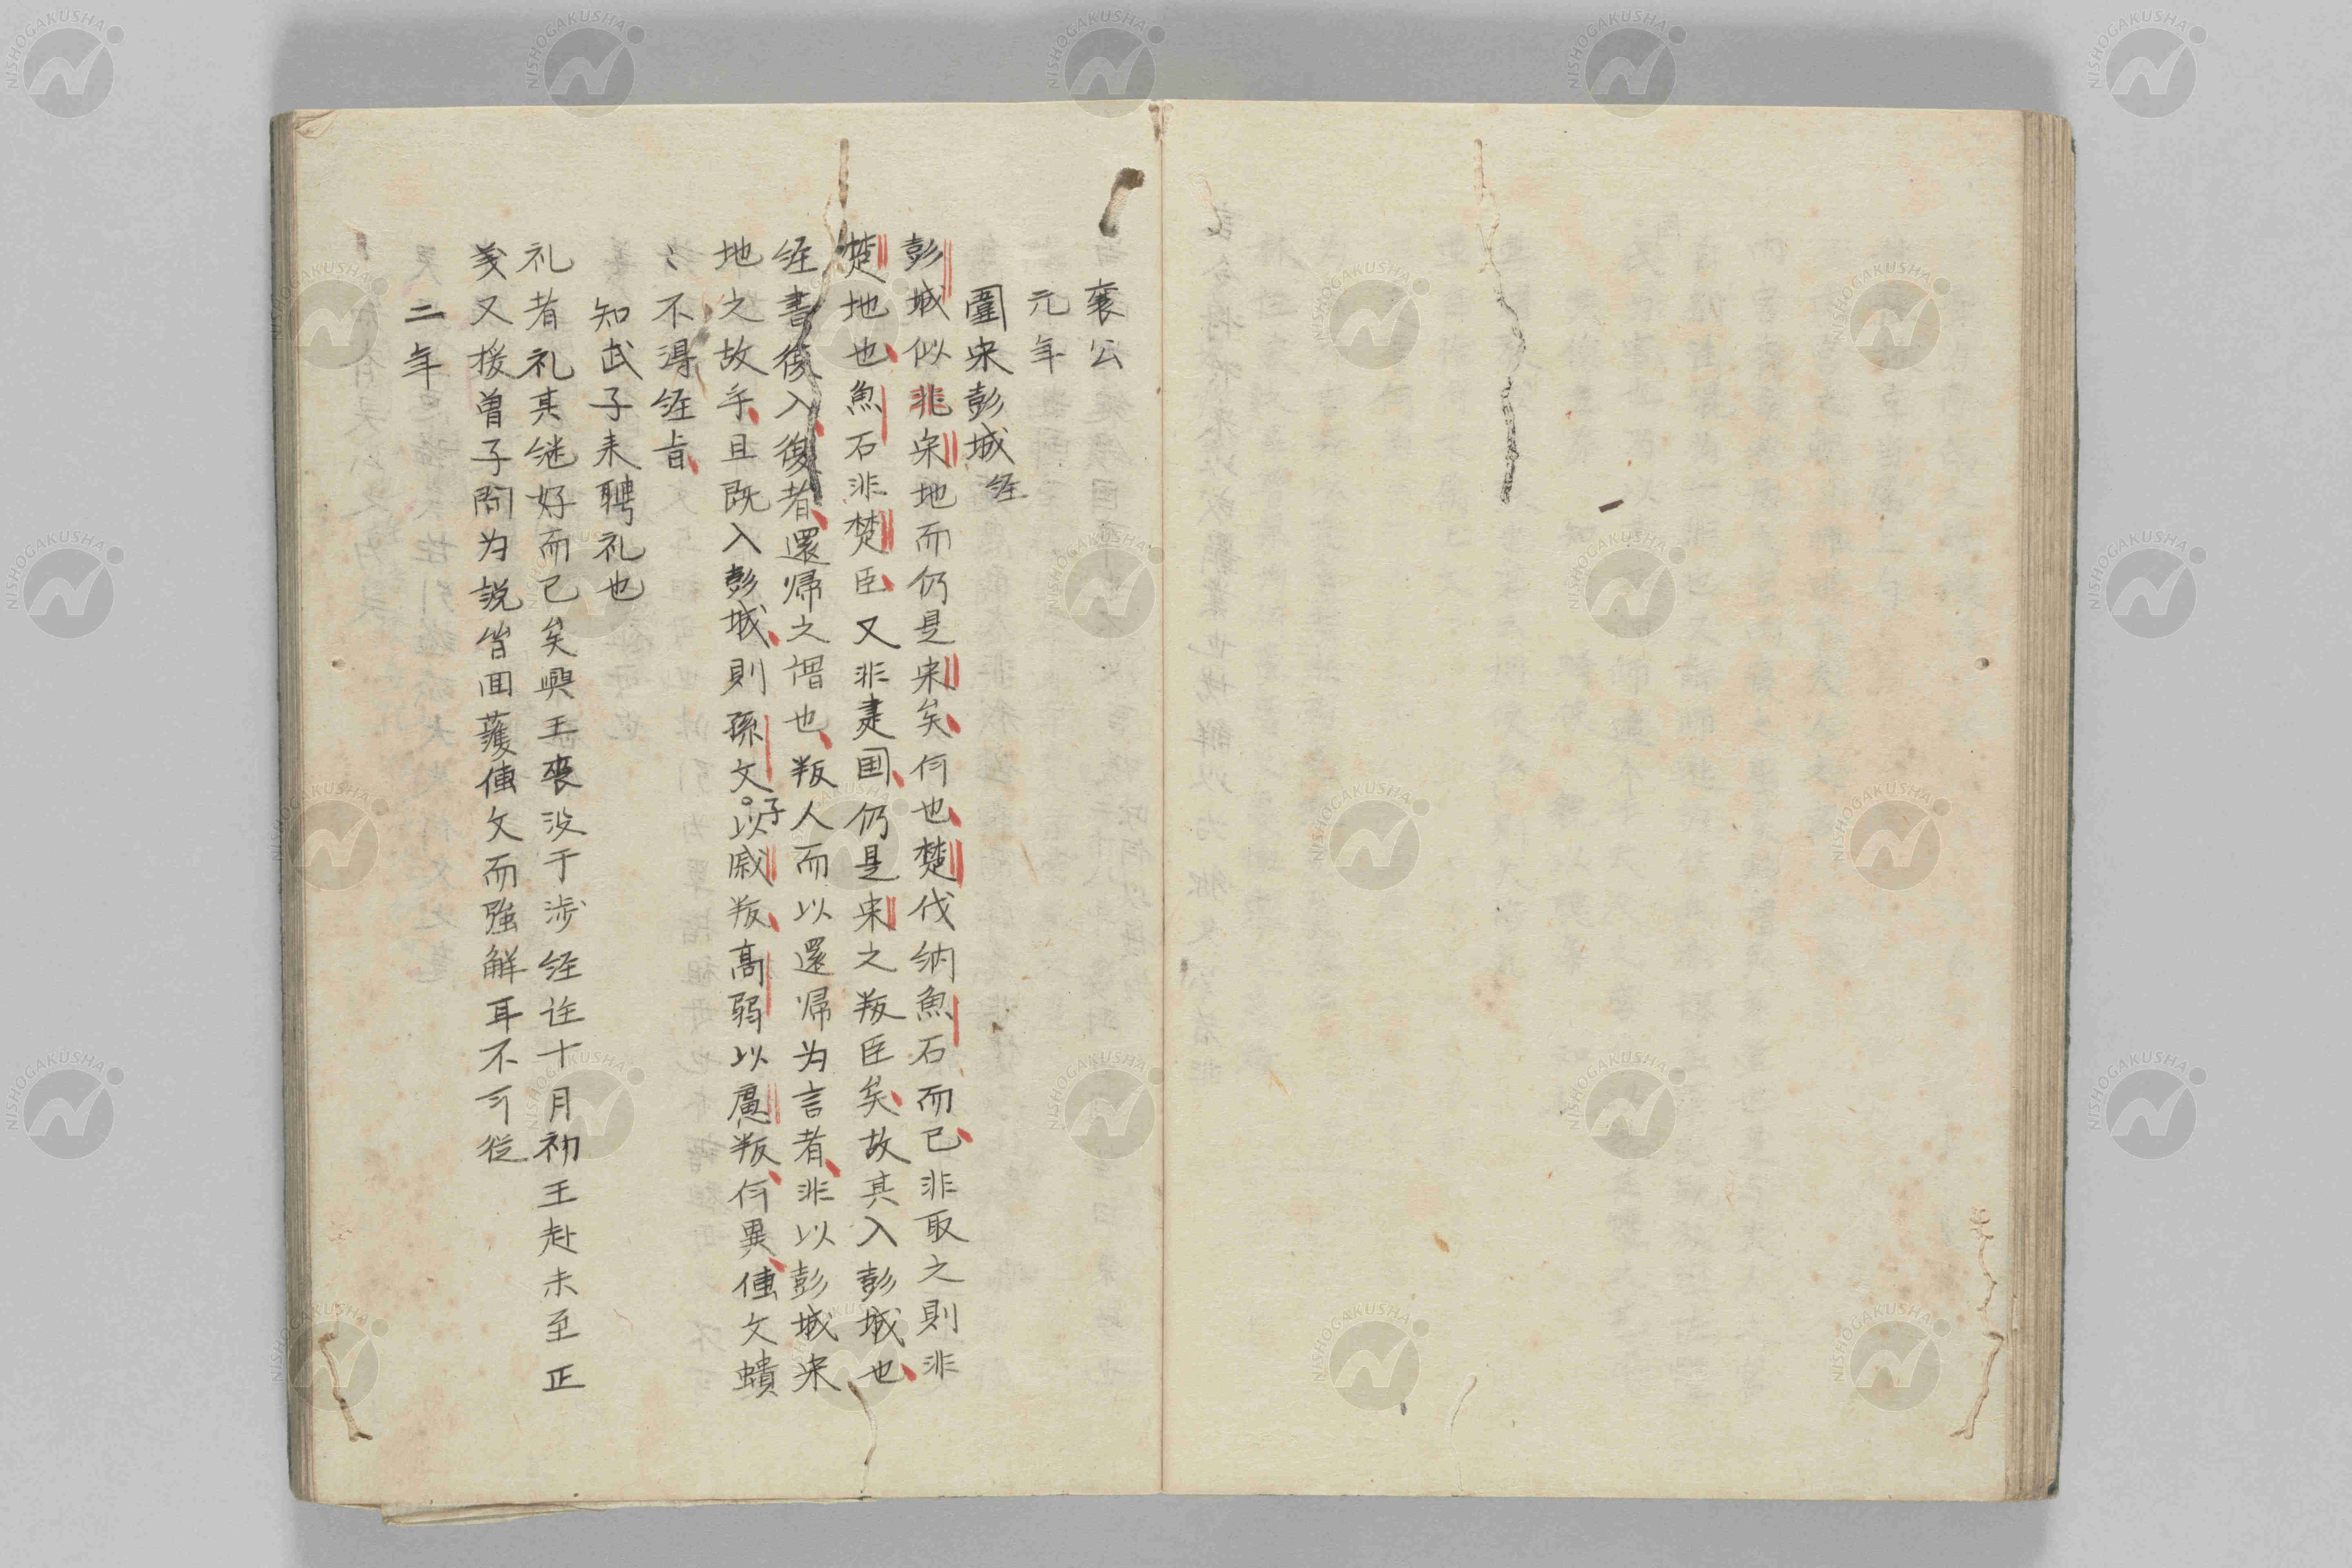 襄公
元年
圍宋彭城 经
彭城似非宋地而仍是宋矣何也楚伐納魚石而已非取之則非
楚地也魚石非楚臣又非建国仍是宋之叛臣矣故其入彭城也
经書復入復者還帰之謂也叛人而以還帰为言者非以彭城宋
地之故乎且既入彭城則孫文子以戚叛高弱以廬叛何異傳文
ヽ不得经旨
知武子来聘礼也
礼者礼其继好而已矣與王喪没于涉经注十月初王赴未至正
义又援曽子問为説皆回護傳文而強解耳不可従
二年
NISHOGAKUSHA